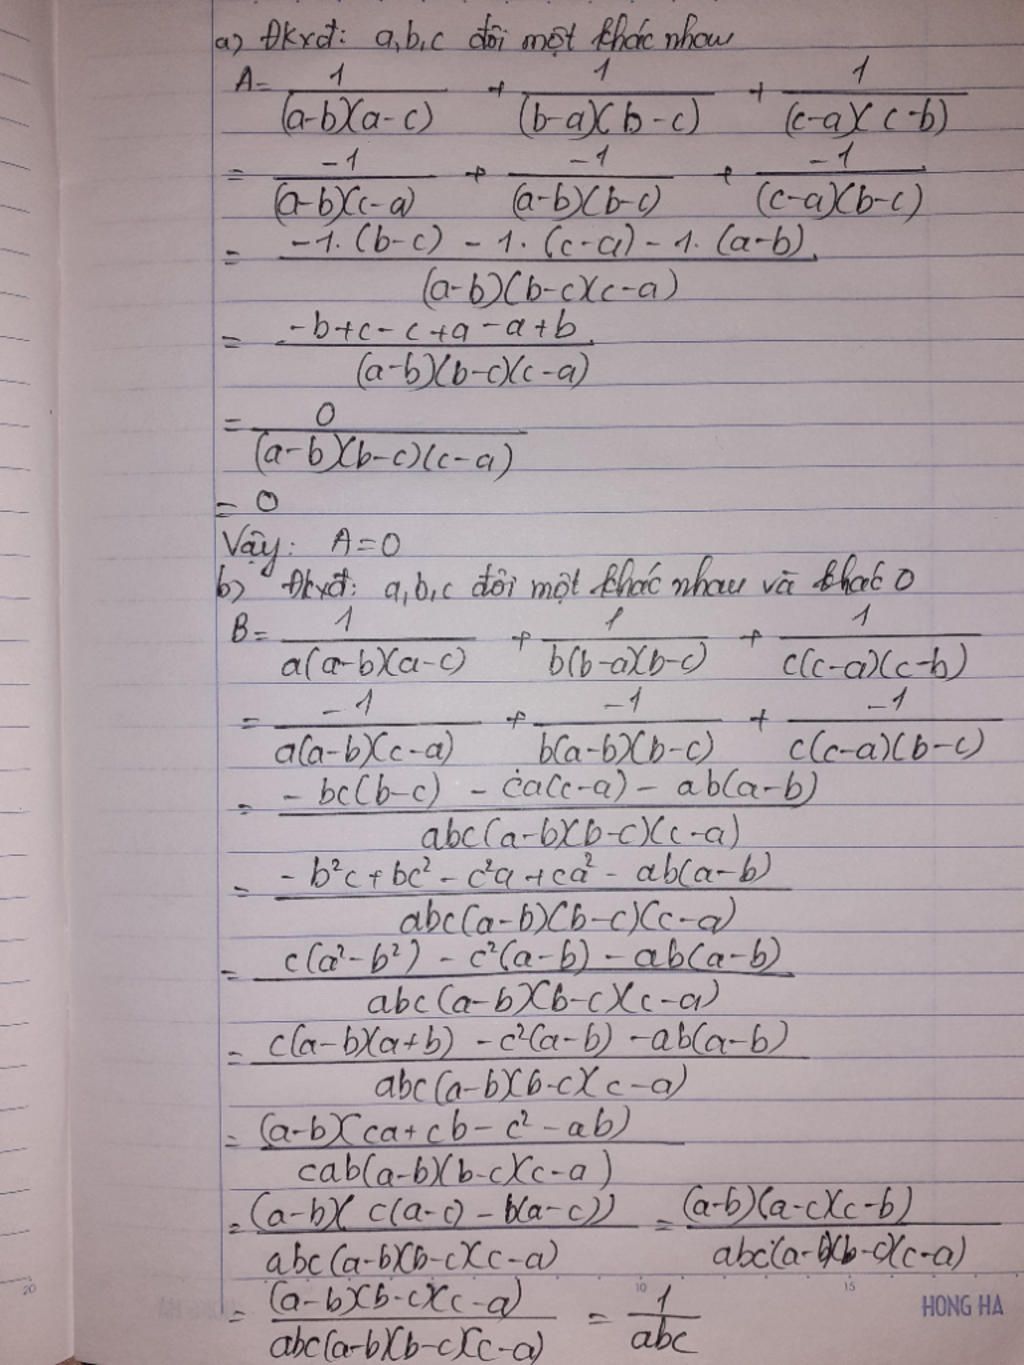 a) Đkxđ: a,b,c đôi một khác nhau
A = 1/((a-b)(a-c)) + 1/((b-a)(b-c)) + 1/((c-a)(c-b))
= -1/((a-b)(c-a)) + -1/((a-b)(b-c)) + -1/((c-a)(b-c))
= (-1.(b-c) - 1.(c-a) - 1.(a-b))/((a-b)(b-c)(c-a))
= (-b+c-c+a-a+b)/((a-b)(b-c)(c-a))
= 0/((a-b)(b-c)(c-a))
= 0
Vậy: A=0
b) Đkxđ: a,b,c đôi một khác nhau và khác 0
B = 1/(a(a-b)(a-c)) + 1/(b(b-a)(b-c)) + 1/(c(c-a)(c-b))
= -1/(a(a-b)(c-a)) + -1/(b(a-b)(b-c)) + -1/(c(c-a)(b-c))
= (-bc(b-c) - ca(c-a) - ab(a-b))/(abc(a-b)(b-c)(c-a))
= (-b²c+bc²-c²a+ca²-ab(a-b))/(abc(a-b)(b-c)(c-a))
= (c(a²-b²) - c²(a-b) - ab(a-b))/(abc(a-b)(b-c)(c-a))
= (c(a-b)(a+b) - c²(a-b) - ab(a-b))/(abc(a-b)(b-c)(c-a))
= (a-b)(ca+cb-c²-ab)/(cab(a-b)(b-c)(c-a))
= (a-b)(c(a-c) - b(a-c))/(abc(a-b)(b-c)(c-a)) = (a-b)(a-c)(c-b)/(abc(a-b)(b-c)(c-a))
= (a-b)(b-c)(c-a)/(abc(a-b)(b-c)(c-a)) = 1/abc
20 10 15
HONG HA